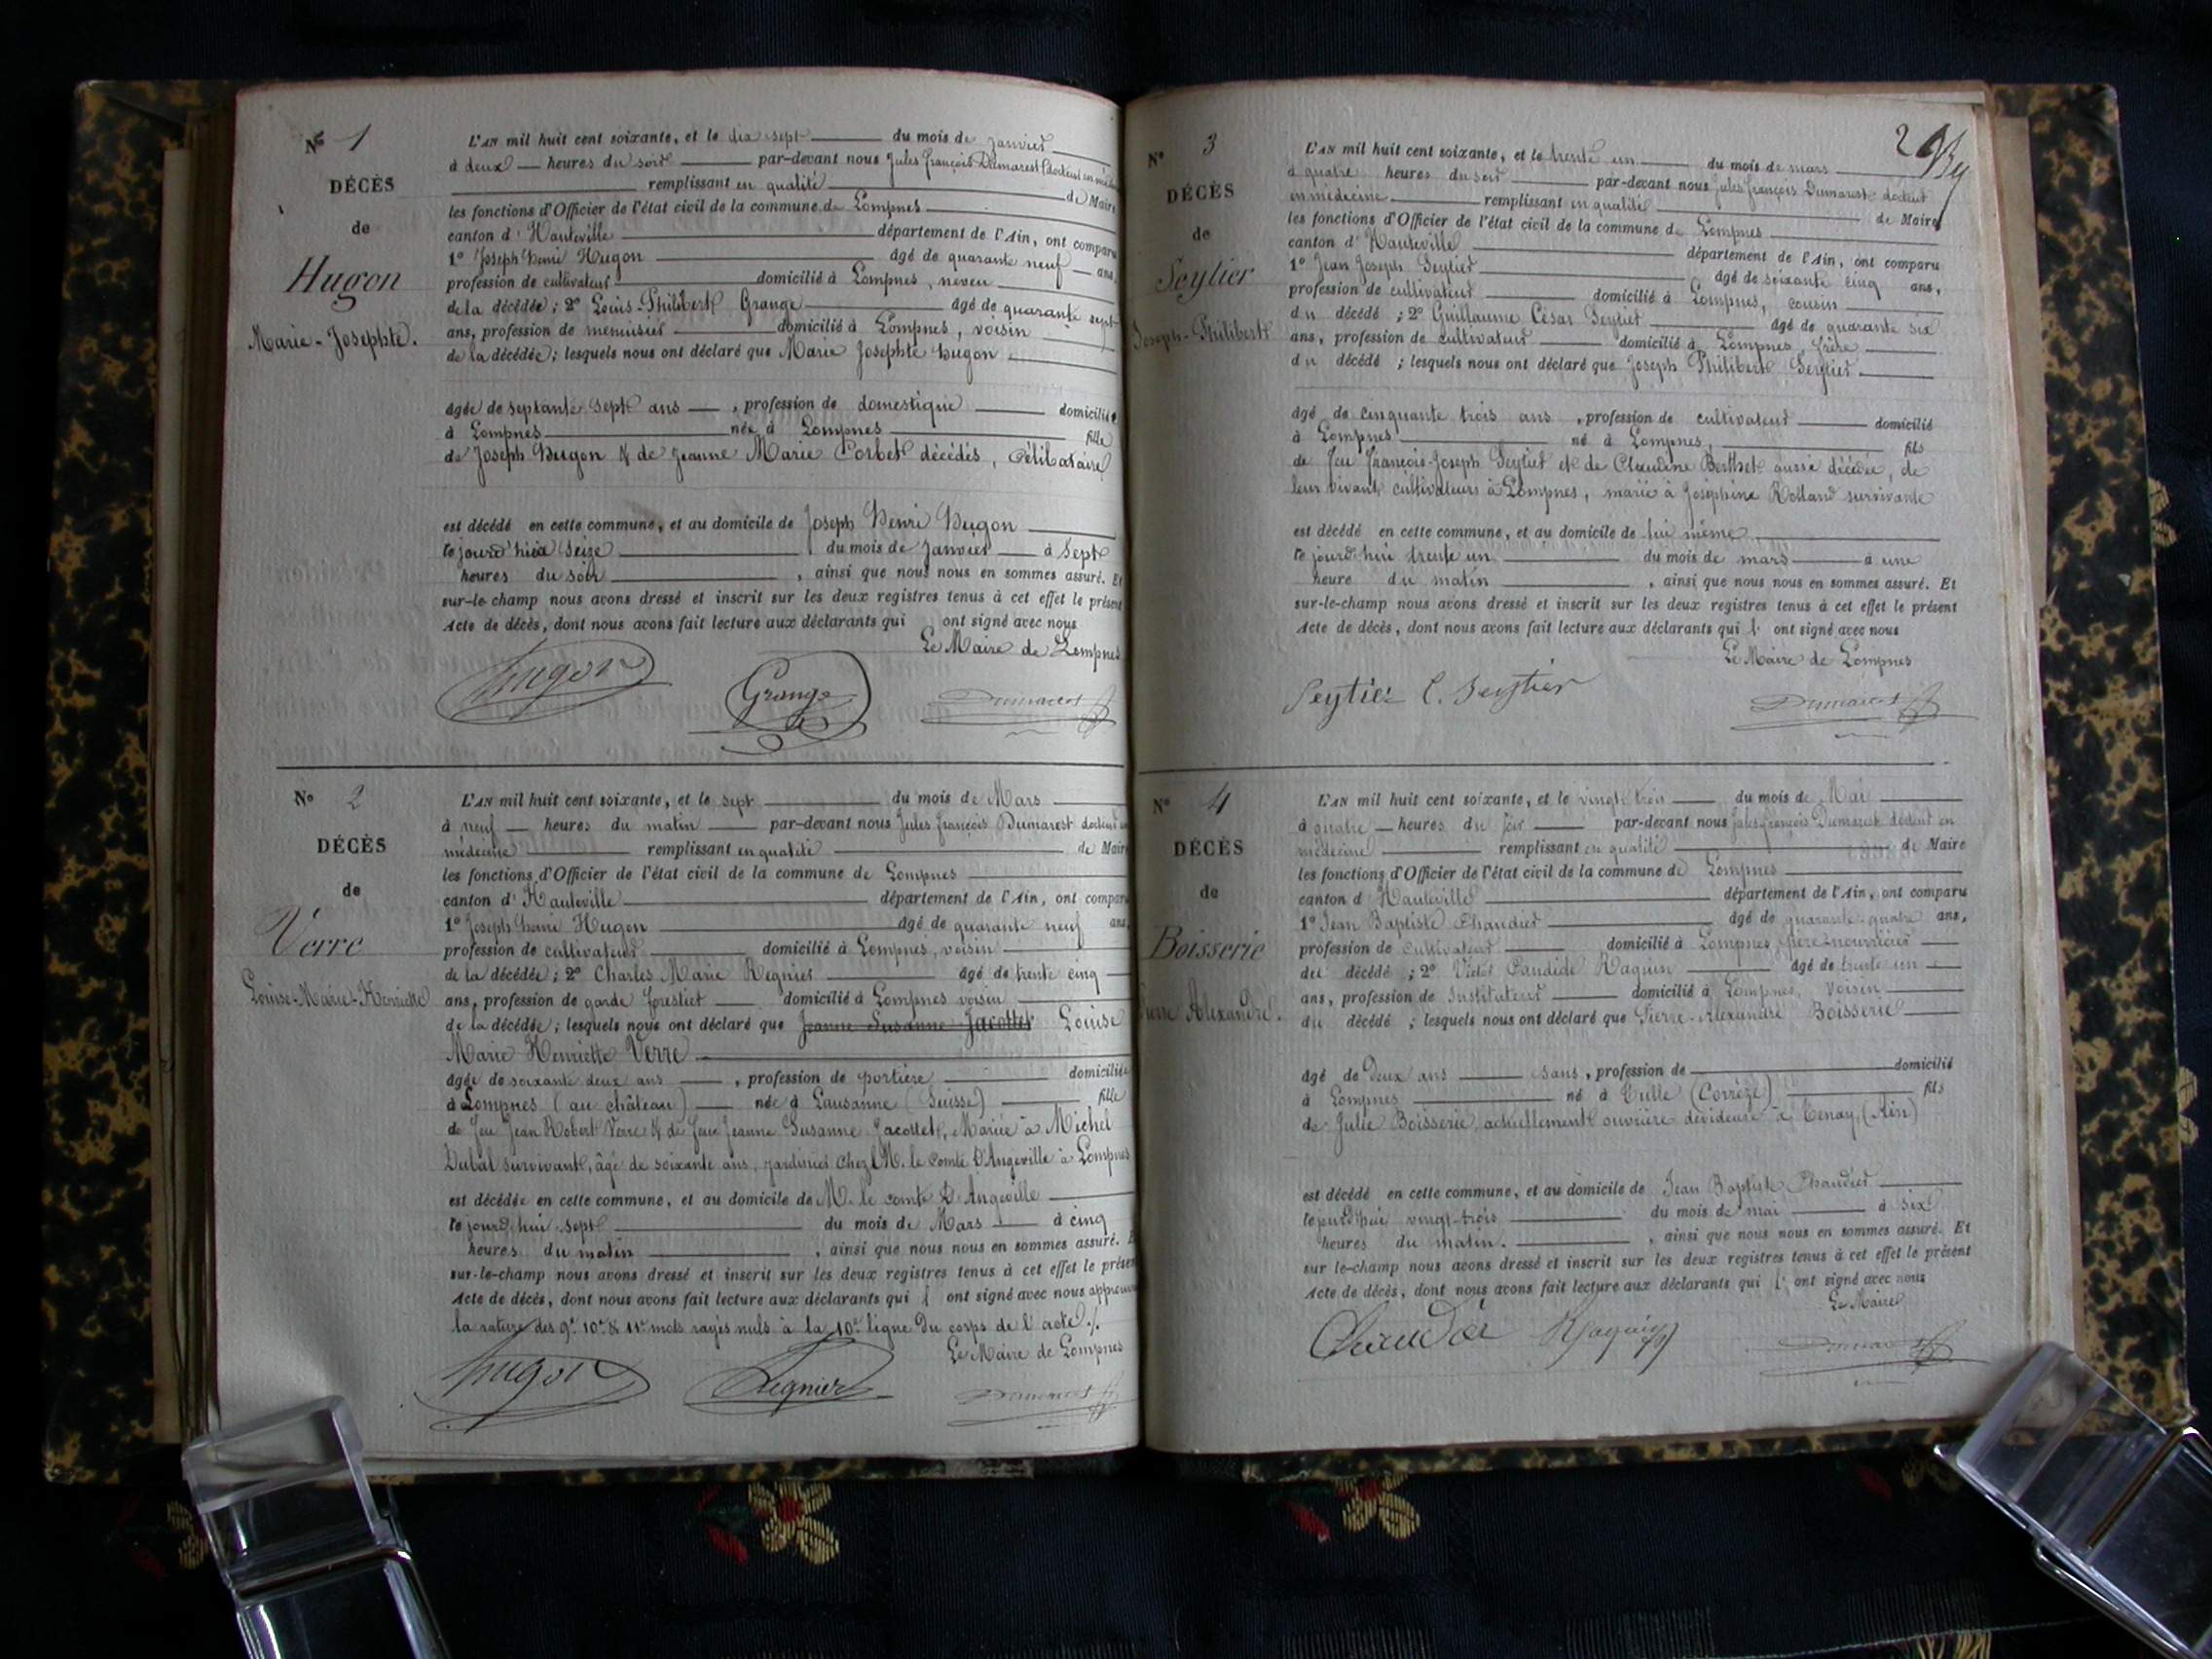 N° 1
DÉCÈS
de
Hugon
Marie-Josephte.
L'AN mil huit cent soixante, et le dix sept du mois de janvier
à deux heures du soir par-devant nous Jules françois Dumarest docteur en
remplissant en qualité de Maire
les fonctions d'Officier de l'état civil de la commune de Lompnes
canton d'Hauteville département de l'Ain, ont comparu
1° Joseph henri Hugon âgé de quarante neuf ans,
profession de cultivateur domicilié à Lompnes, neveu
de la décédée; 2° Louis-Philibert Grange âgé de quarante sept
ans, profession de menuisier domicilié à Lompnes, voisin
de la décédée; lesquels nous ont déclaré que Marie Josephte hugon
âgée de septante sept ans, profession de domestique domiciliée
à Lompnes née à Lompnes fille
de Joseph hugon & de jeanne Marie Corbet décédés, célibataire
est décédé en cette commune, et au domicile de Joseph Henri Hugon
le jourd'hier seize du mois de janvier à sept
heures du soir, ainsi que nous nous en sommes assuré. Et
sur-le-champ nous avons dressé et inscrit sur les deux registres tenus à cet effet le présent
Acte de décès, dont nous avons fait lecture aux déclarants qui ont signé avec nous
Le Maire de Lompnes
hugon Grange Dumarest
N° 2
DÉCÈS
de
Verre
Louise-Marie-Henriette
L'AN mil huit cent soixante, et le sept du mois de Mars
à neuf heures du matin par-devant nous Jules françois Dumarest docteur en
médecine remplissant en qualité de Maire
les fonctions d'Officier de l'état civil de la commune de Lompnes
canton d'Hauteville département de l'Ain, ont comparu
1° Joseph henri Hugon âgé de quarante neuf ans,
profession de cultivateur domicilié à Lompnes, voisin
de la décédée; 2° Charles Marie Regnier âgé de trente cinq
ans, profession de garde forestier domicilié à Lompnes voisin
de la décédée; lesquels nous ont déclaré que Jeanne Susanne Jacottet Louise
Marie Henriette Verre
âgée de soixante deux ans, profession de portière domiciliée
à Lompnes (au château) née à Lausanne (Suisse) fille
de feu Jean Robert Verre & de feue Jeanne Susanne Jacottet, Mariée à Michel
Dubal survivant, âgé de soixante ans, jardinier chez M. le Comte D'Angeville à Lompnes
est décédée en cette commune, et au domicile de M. le comte D'Angeville
le jourd'hui sept du mois de Mars à cinq
heures du matin, ainsi que nous nous en sommes assuré. E
sur-le-champ nous avons dressé et inscrit sur les deux registres tenus à cet effet le présen
Acte de décès, dont nous avons fait lecture aux déclarants qui ont signé avec nous approuvé
la rature des 9e 10e & 11e mots rayés nuls à la 10e ligne du corps de l'acte ./.
Le Maire de Lompnes
hugon Regnier Dumarest
2
N° 3
DÉCÈS
de
Seytier
Joseph-Philibert
L'AN mil huit cent soixante, et le trente un du mois de mars
à quatre heures du soir par-devant nous Jules françois Dumarest docteur
en médecine remplissant en qualité de Maire
les fonctions d'Officier de l'état civil de la commune de Lompnes
canton d'Hauteville département de l'Ain, ont comparu
1° Jean Joseph Seytier âgé de soixante cinq ans,
profession de cultivateur domicilié à Lompnes, cousin
du décédé; 2° Guillaume César Seytier âgé de quarante six
ans, profession de cultivateur domicilié à Lompnes, frère
du décédé; lesquels nous ont déclaré que Joseph Philibert Seytier
âgé de cinquante trois ans, profession de cultivateur domicilié
à Lompnes né à Lompnes, fils
de feu françois-Joseph Seytier et de Claudine Berthet aussi décédée, de
leur vivant cultivateurs à Lompnes, marié à Joséphine Rolland survivante
est décédé en cette commune, et au domicile de lui même
le jourd'hui trente un du mois de mars à une
heure du matin, ainsi que nous nous en sommes assuré. Et
sur-le-champ nous avons dressé et inscrit sur les deux registres tenus à cet effet le présent
Acte de décès, dont nous avons fait lecture aux déclarants qui ont signé avec nous
Le Maire de Lompnes
Seytier C. Seytier Dumarest
N° 4
DÉCÈS
de
Boisserie
Pierre Alexandre.
L'AN mil huit cent soixante, et le vingt trois du mois de Mai
à quatre heures du soir par-devant nous Jules françois Dumarest docteur en
médecine remplissant en qualité de Maire
les fonctions d'Officier de l'état civil de la commune de Lompnes
canton d'Hauteville département de l'Ain, ont comparu
1° Jean Baptiste Chaudier âgé de quarante-quatre ans,
profession de Cultivateur domicilié à Lompnes, père nourricier
du décédé; 2° Victor Candide Raquin âgé de trente un
ans, profession de Instituteur domicilié à Lompnes, voisin
du décédé; lesquels nous ont déclaré que Pierre-Alexandre Boisserie
âgé de Deux ans sans, profession de domicilié
à Lompnes né à Tulle (Corrèze) fils
de Julie Boisserie, actuellement ouvrière dévideuse à Tenay (Ain)
est décédé en cette commune, et au domicile de Jean Baptiste Chaudier
le jourd'hui vingt-trois du mois de mai à six
heures du matin., ainsi que nous nous en sommes assuré. Et
sur le-champ nous avons dressé et inscrit sur les deux registres tenus à cet effet le présent
Acte de décès, dont nous avons fait lecture aux déclarants qui ont signé avec nous
Le Maire
Chaudier Raquin Dumarest